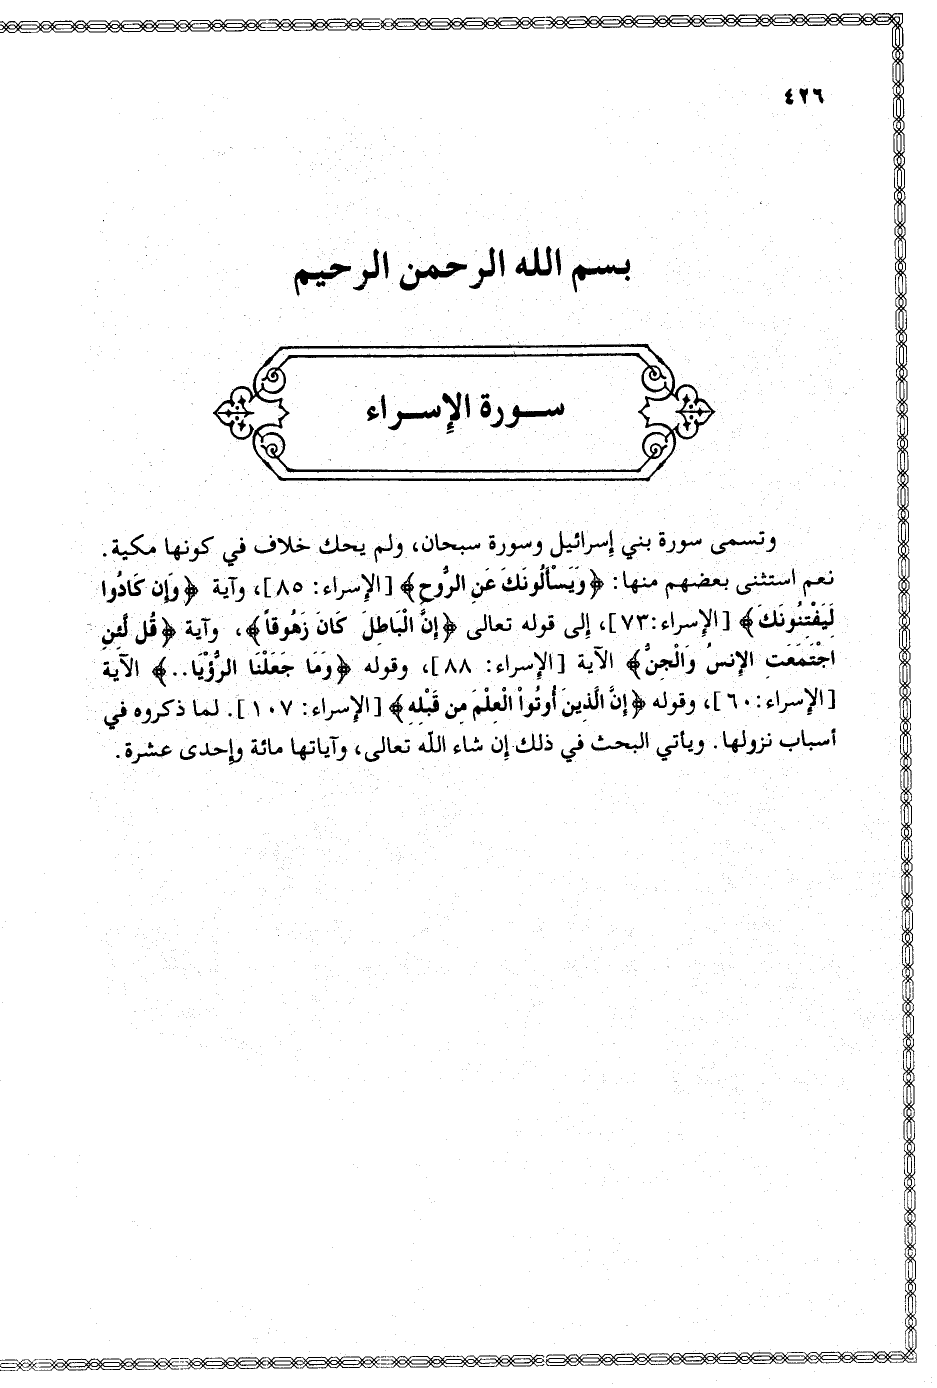 ٤٢٦
بسم الله الرحمن الرحيم
سورة الإسراء
وتسمى سورة بني إسرائيل وسورة سبحان، ولم يحك خلاف في كونها مكية.
نعم استثنى بعضهم منها: ﴿وَيَسْأَلُونَكَ عَنِ الرُّوحِ﴾ [الإسراء: ٨٥]، وآية ﴿وَإِن كَادُوا
لَيَفْتِنُونَكَ﴾ [الإسراء:٧٣]، إلى قوله تعالى ﴿إِنَّ الْبَاطِلَ كَانَ زَهُوقاً﴾، وآية ﴿قُل لَّئِنِ
اجْتَمَعَتِ الإِنسُ وَالْجِنُّ﴾ الآية [الإسراء: ٨٨]، وقوله ﴿وَمَا جَعَلْنَا الرُّؤْيَا..﴾ الآية
[الإسراء:٦٠]، وقوله ﴿إِنَّ الَّذِينَ أُوتُواْ الْعِلْمَ مِن قَبْلِهِ﴾ [الإسراء: ١٠٧]. لما ذكروه في
أسباب نزولها. ويأتي البحث في ذلك إن شاء الله تعالى، وآياتها مائة وإحدى عشرة.